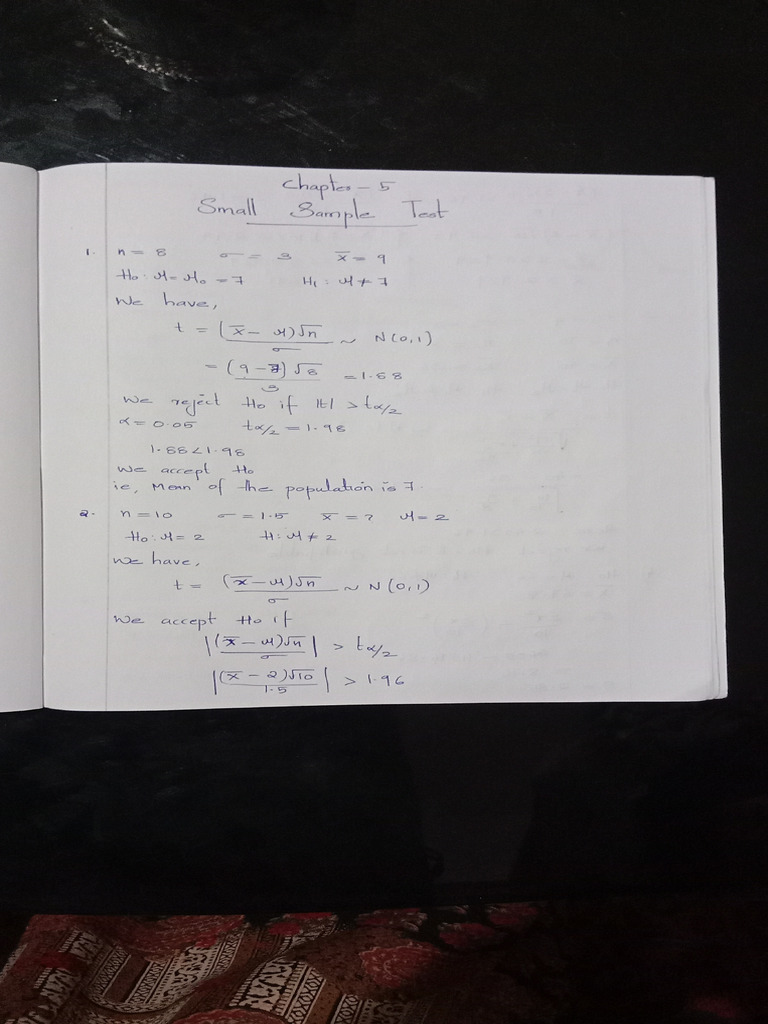 Chapter - 5
Small Sample Test
1. n = 8 σ = 3 x̄ = 9
H₀ : μ = μ₀ = 7 H₁ : μ ≠ 7
We have,
t = (x̄ - μ)√n / σ ~ N(0,1)
= (9 - 7)√8 / 3 = 1.88
We reject H₀ if |t| > tα/2
α = 0.05 tα/2 = 1.98
1.88 < 1.98
We accept H₀
ie, Mean of the population is 7.
2. n = 10 σ = 1.5 x̄ = ? μ = 2
H₀ : μ = 2 H : μ ≠ 2
We have,
t = (x̄ - μ)√n / σ ~ N(0,1)
We accept H₀ if
|(x̄ - μ)√n / σ| > tα/2
|(x̄ - 2)√10 / 1.5| > 1.96